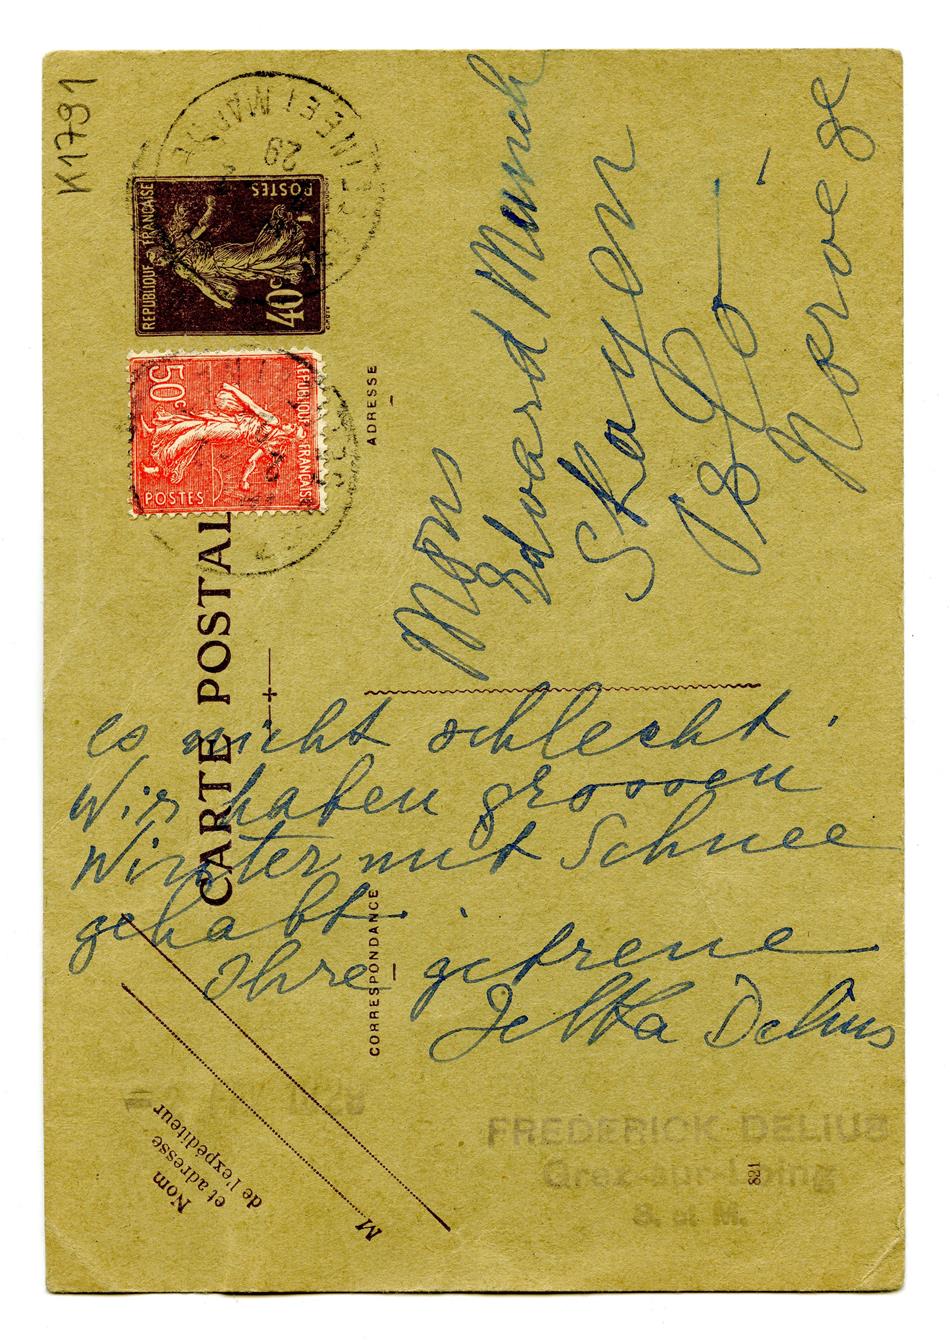 K1791
REPUBLIQUE FRANÇAISE
POSTES
40c
29
50c
REPUBLIQUE FRANÇAISE
POSTES
CARTE POSTALE
ADRESSE
Mons
Edvard Munch
Skøyen
Oslo
Norvège
CORRESPONDANCE
es nicht schlecht.
Wir haben grossen
Winter mit Schnee
gehabt.
Ihre getreue
Jelka Delius
Nom
et adresse
de l'expéditeur
M
FREDERICK DELIUS
Grez-sur-Loing
S. et M.
821